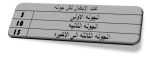 عدد الابطال لكل جولة
الجولة الاولى 5
الجولة الثانية 10
الجولة الثالثة الى الاخيره 15